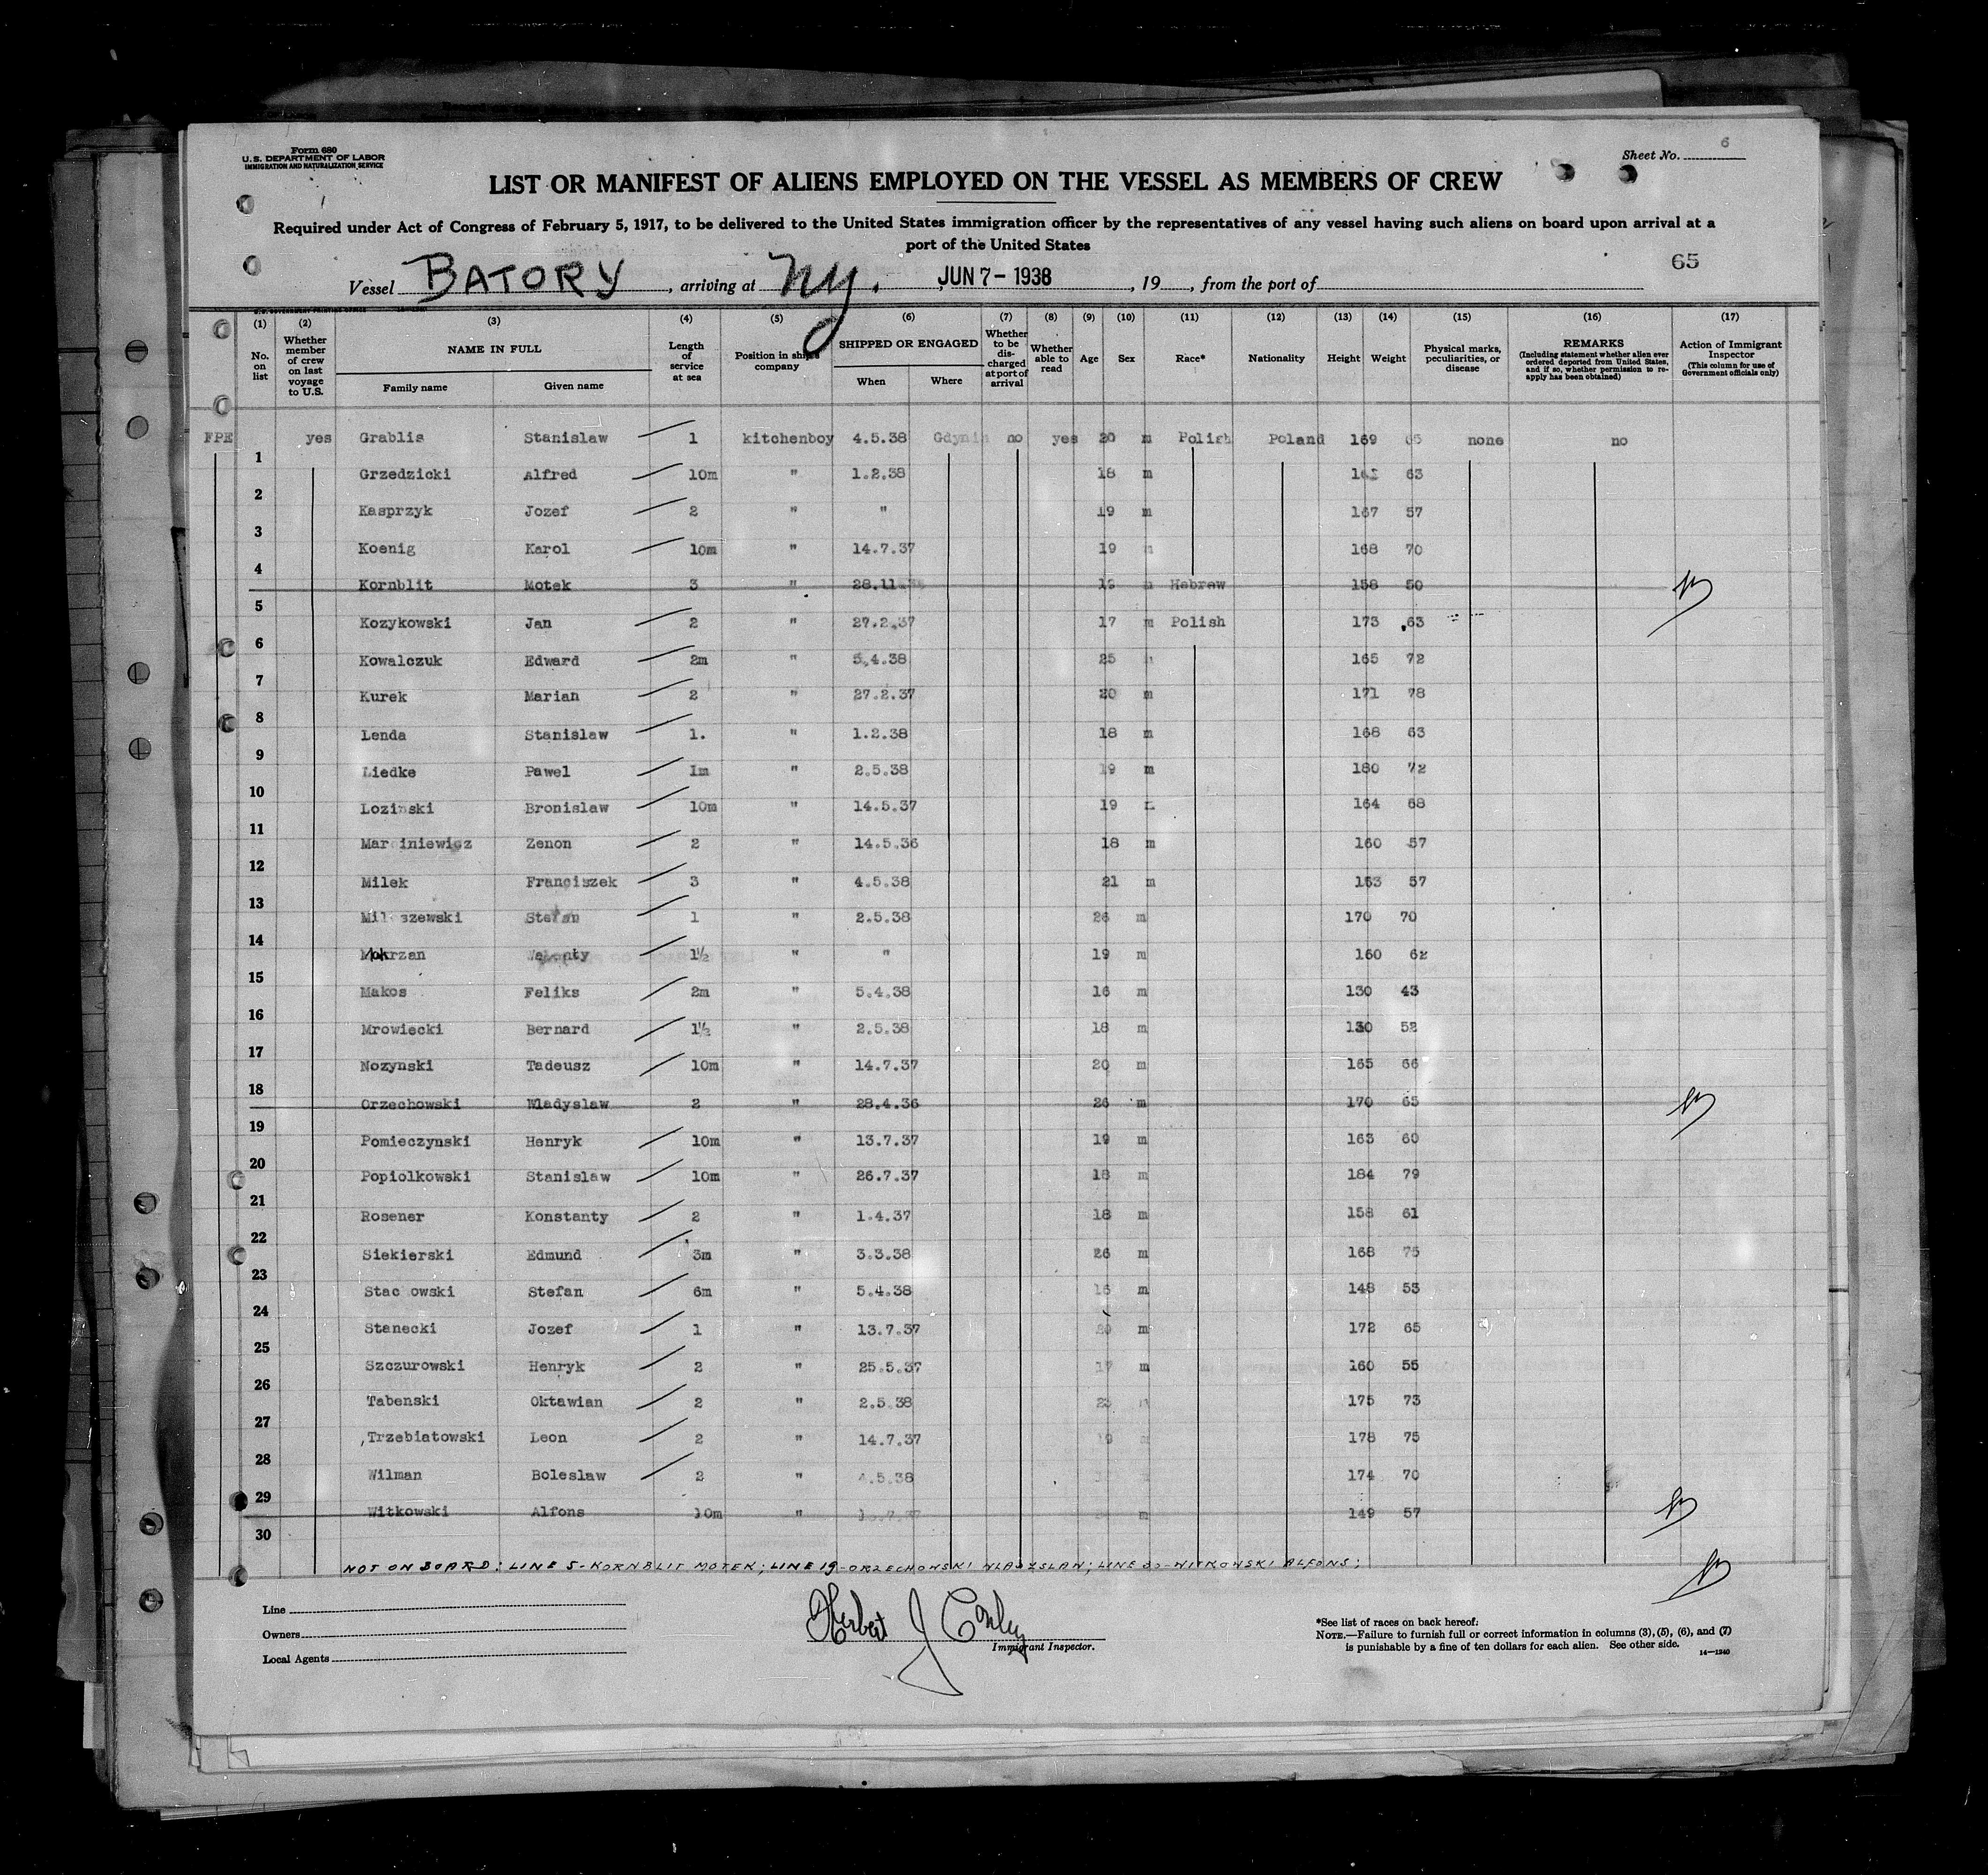 Form 680
U.S. DEPARTMENT OF LABOR
IMMIGRATION AND NATURALIZATION SERVICE
Sheet No. 6
LIST OR MANIFEST OF ALIENS EMPLOYED ON THE VESSEL AS MEMBERS OF CREW
Required under Act of Congress of February 5, 1917, to be delivered to the United States immigration officer by the representatives of any vessel having such aliens on board upon arrival at a
port of the United States
65
Vessel BATORY, arriving at Ny. JUN 7 - 1938, 19, from the port of
(1) (2) (3) (4) (5) (6) (7) (8) (9) (10) (11) (12) (13) (14) (15) (16) (17)
No. on list
Whether member of crew on last voyage to U.S.
NAME IN FULL
Family name Given name
Length of service at sea
Position in ship's company
SHIPPED OR ENGAGED
When Where
Whether to be discharged at port of arrival
Whether able to read
Age
Sex
Race*
Nationality
Height
Weight
Physical marks, peculiarities, or disease
REMARKS
(Including statement whether alien ever ordered deported from United States, and if so, whether permission to reapply has been obtained)
Action of Immigrant Inspector
(This column for use of Government officials only)
FPE yes Grablis Stanislaw 1 kitchenboy 4.5.38 Gdynia no yes 20 m Polish Poland 169 65 none no
1
Grzedzicki Alfred 10m " 1.2.38 18 m 63
2
Kasprzyk Jozef 2 " " 19 m 167 57
3
Koenig Karol 10m " 14.7.37 19 168 70
4
Kornblit Motek 3 " 28.11 Hebrew 158 50
5
Kozykowski Jan 2 " 27.2.37 17 m Polish 173 63
6
Kowalczuk Edward 2m " 5.4.38 25 165 72
7
Kurek Marian 2 " 27.2.37 20 m 171 78
8
Lenda Stanislaw 1. " 1.2.38 18 m 168 63
9
Liedke Pawel 1m " 2.5.38 19 m 180 72
10
Lozinski Bronislaw 10m " 14.5.37 19 164 68
11
Marciniewicz Zenon 2 " 14.5.36 18 m 160 57
12
Milek Franciszek 3 " 4.5.38 21 m 57
13
Miloszewski Stefan 1 " 2.5.38 26 m 170 70
14
Mokrzan Walenty 1½ " " 19 m 160 62
15
Makos Feliks 2m " 5.4.38 16 m 130 43
16
Mrowiecki Bernard 1½ " 2.5.38 18 m 52
17
Nozynski Tadeusz 10m " 14.7.37 20 m 165 66
18
Orzechowski Wladyslaw 2 " 28.4.36 26 m 170 65
19
Pomieczynski Henryk 10m " 13.7.37 19 m 163 60
20
Popiolkowski Stanislaw 10m " 26.7.37 18 m 184 79
21
Rosener Konstanty 2 " 1.4.37 18 m 158 61
22
Siekierski Edmund 3m " 3.3.38 26 m 168 75
23
Stac owski Stefan 6m " 5.4.38 16 m 148 53
24
Stanecki Jozef 1 " 13.7.37 m 172 65
25
Szczurowski Henryk 2 " 25.5.37 17 m 160 55
26
Tabenski Oktawian 2 " 2.5.38 175 73
27
Trzebiatowski Leon 2 " 14.7.37 178 75
28
Wilman Boleslaw 2 " 4.5.38 174 70
29
Witkowski Alfons 10m " m 149 57
30
NOT ON BOARD: LINE 5-KORNBLIT MOTEK; LINE 19-ORZECHOWSKI WLADYSLAW; LINE 30-WITKOWSKI ALFONS;
Line
Owners
Local Agents
Herbert J Conley
Immigrant Inspector.
*See list of races on back hereof.
NOTE.—Failure to furnish full or correct information in columns (3), (5), (6), and (7)
is punishable by a fine of ten dollars for each alien. See other side.
14—1240